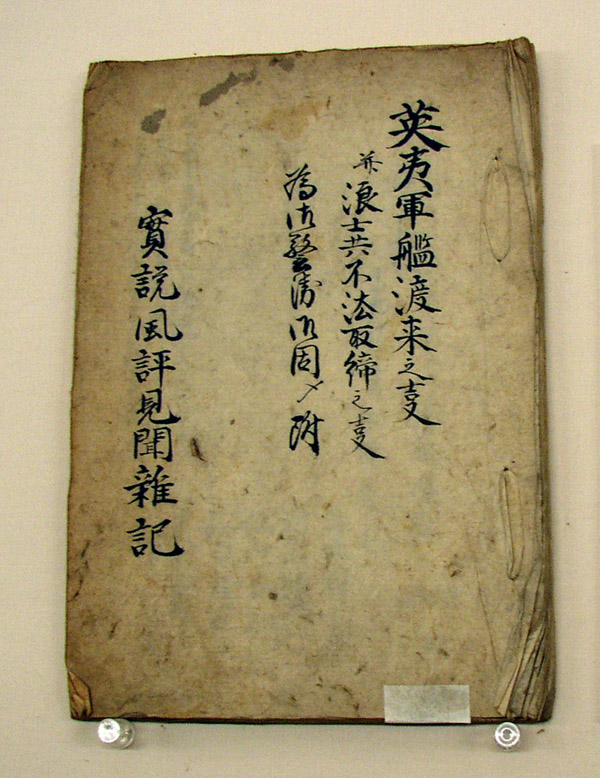 英夷軍艦渡来之叓
并浪士共不法取締之叓
為御警衛御固〆附
實説風評見聞雜記